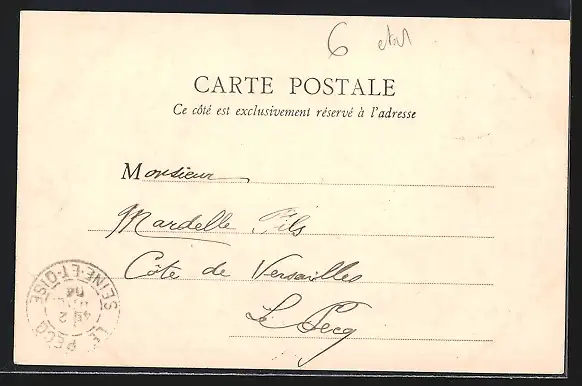 6
CARTE POSTALE
Ce côté est exclusivement réservé à l'adresse
Monsieur
Mardelle Fils
Côte de Versailles
Le Pecq
LE PECQ
SEINE-ET-OISE
04